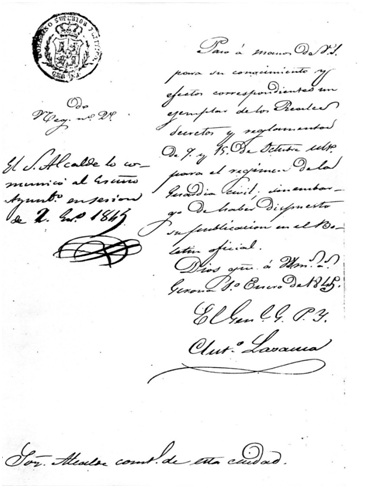 GOBIERNO SUPERIOR POLITICO
GERONA
Neg.º n.º
El S. Alcalde lo co-
municó al Escmo
Ayunt.º en sesion
de 2. En.º 1845
Paso á manos de V.S.
para su conocimiento y
efectos correspondientes un
ejemplar de los Reales
decretos y reglamentos
de 7. y 15. de Octubre ult.º
para el regimen de la
Guardia Civil. sin embar-
go de haber dispuesto
su publicacion en el Bo-
letin oficial.
Dios gue. á V. m.s a.s
Gerona 1.º Enero de 1845.
El Gen.l G. P. Y.
Ant.º Lasauca
Sor. Alcalde const.l de esta ciudad.